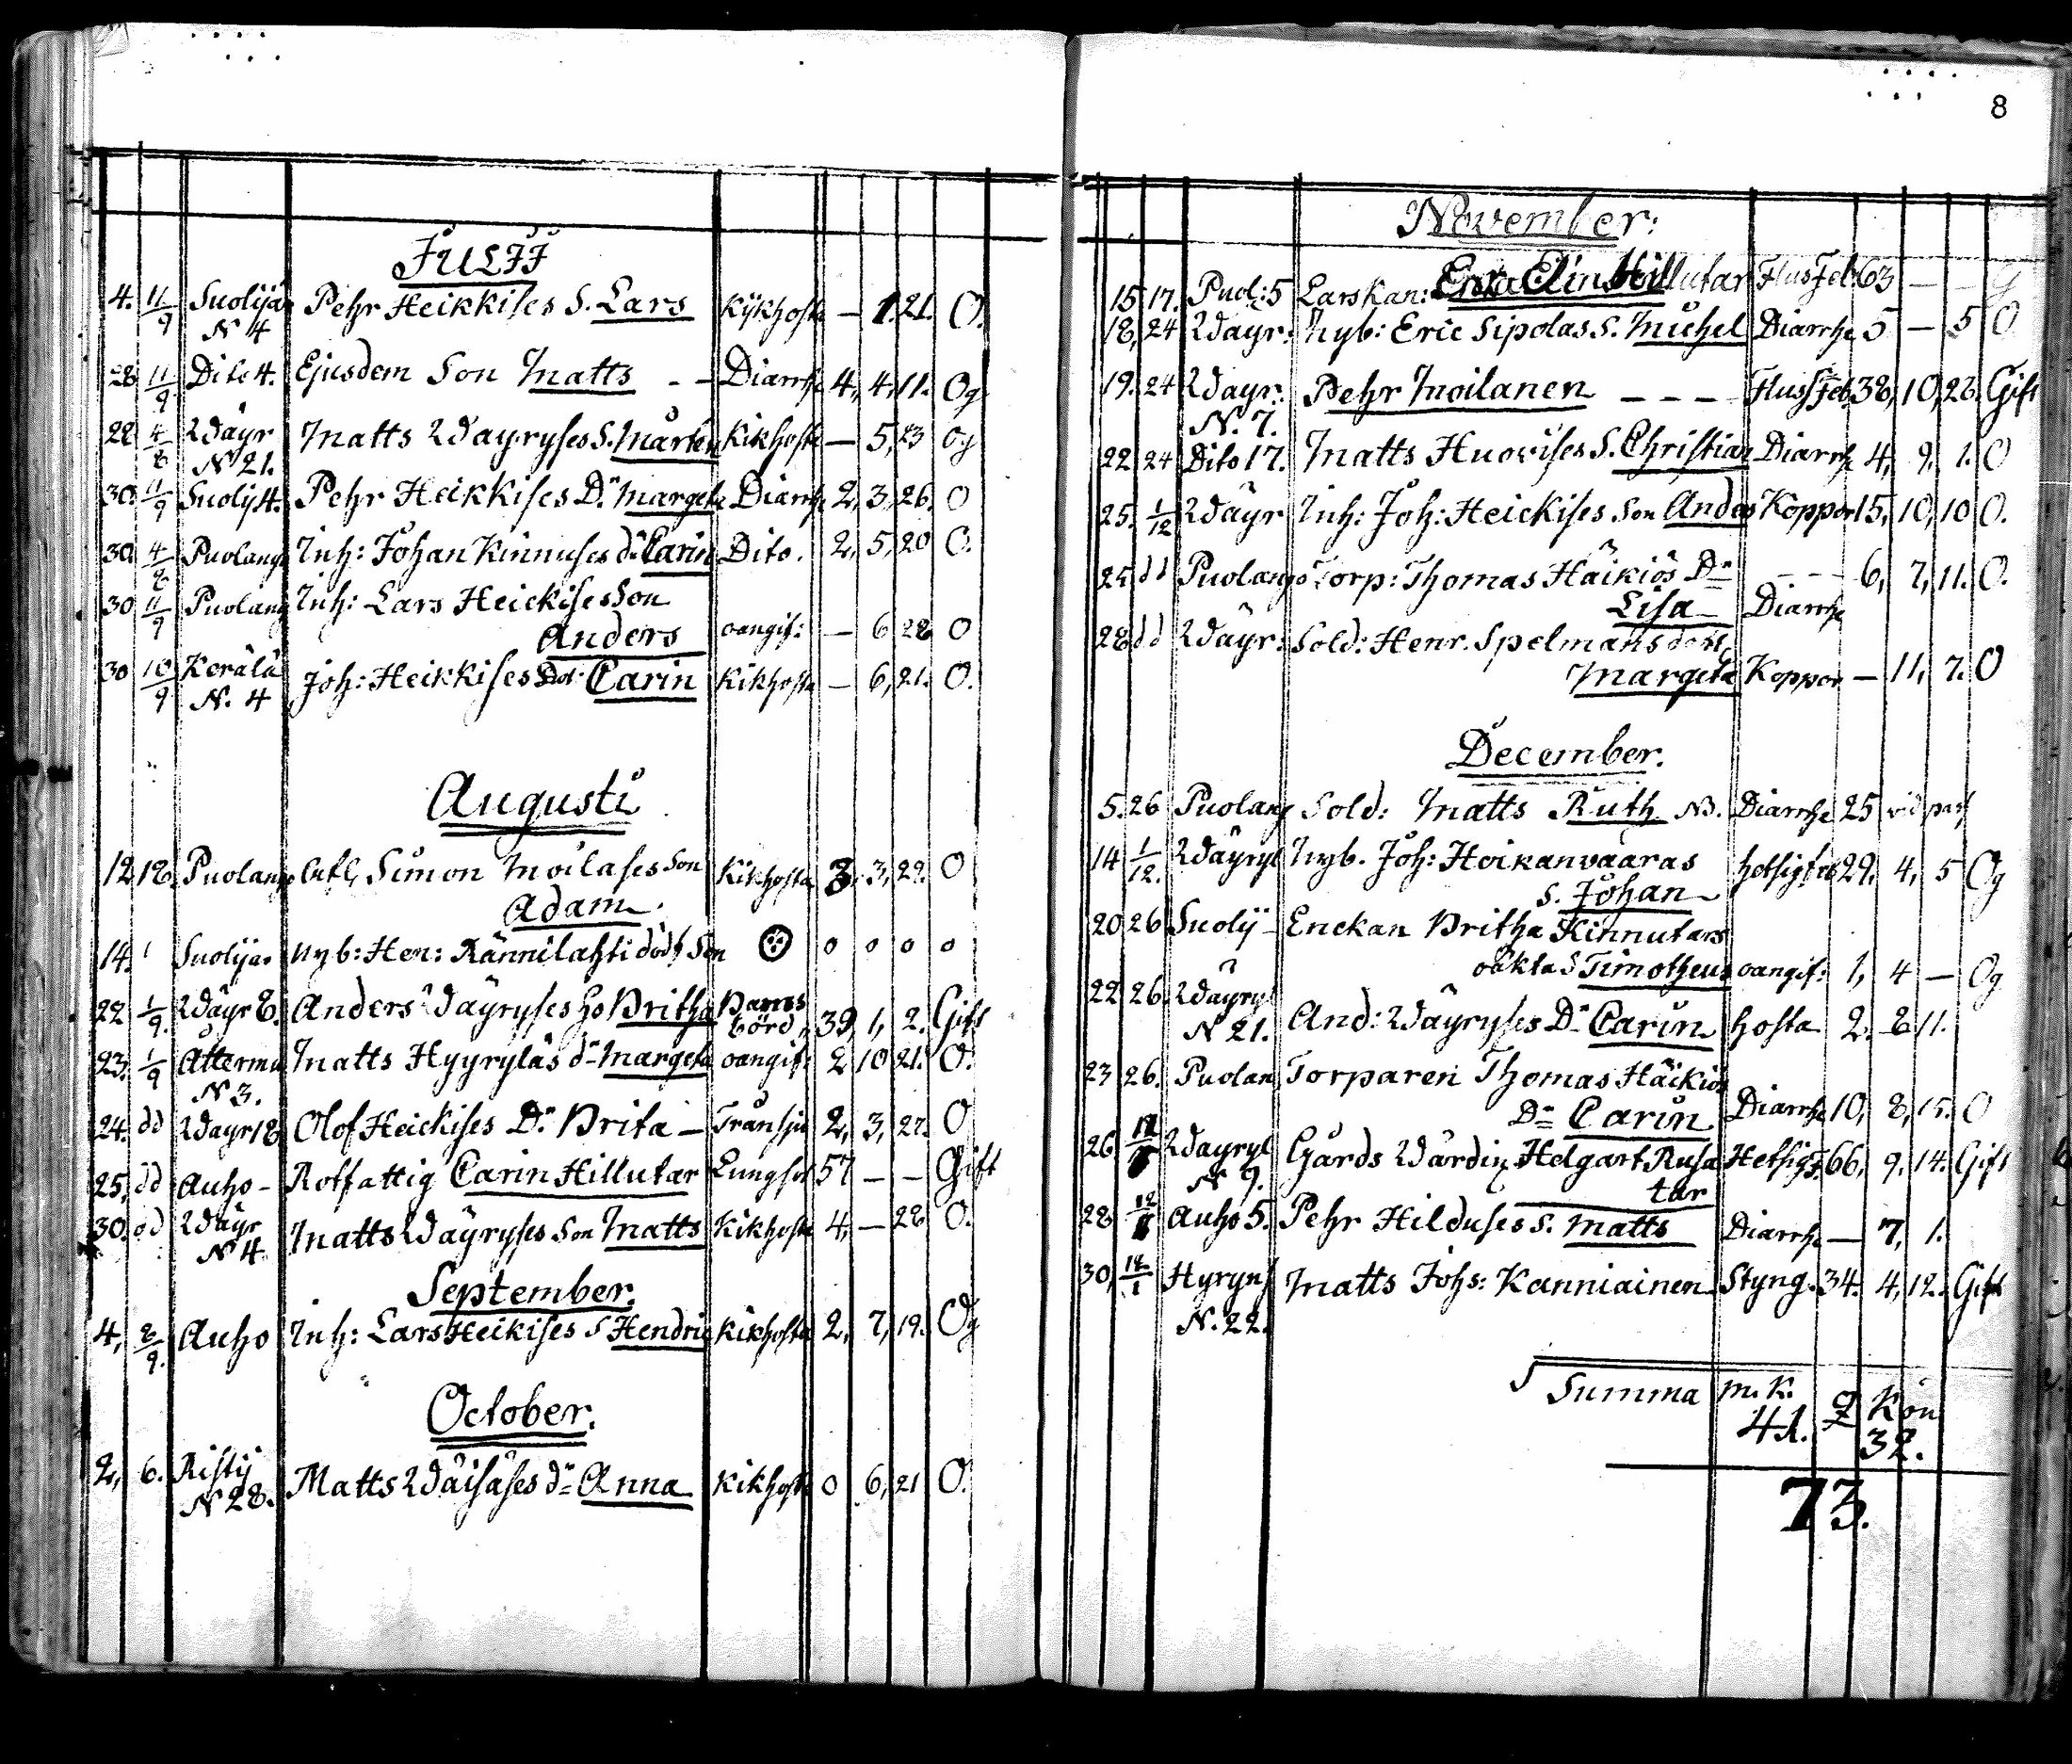 8
Julii
4. 11/9 Suolijär Pehr Heikkises S. Lars Kikhosta — 1. 21. O.
N 4
28 11/9 Dito 4. Ejusdem Son Matts - - Diarrhe 4, 4, 11. Og
22 4/8 Wäyr Matts Wäyryses S. Mårten Kikhosta — 5, 23 Og
N 21.
30. 11/9 Suolij 4. Pehr Heikkises Dr Margeta Diarrhe 2, 3, 26. O
30 4/8 Puolang Inh: Johan Kinnuses dr Carin Dito. 2, 5, 20 O.
30 11/9 Puolang Inh: Lars Heickises Son
Anders oangif: — 6 28 O
30 10/9 Kerälä Joh: Heikkises Dot: Carin Kikhosta — 6, 21. O.
N. 4
Augusti
12 18. Puolang Simon Moilases Son Kikhosta 3, 3, 29. O
Adam
14. Suolijär Nyb: Hen: Rännilahti dödf Son o o o o
22 1/9. Wäyr 8. Anders Wäyryses hu Britha Barns 39, 1, 2. Gift
börd,
23. 1/9 Attermu Matts Hyyryläs dr Margeta oangif: 2 10 21. O.
N 3.
24. dd Wäyr 18 Olof Heickises Dr Brita — Transju 2, 3, 27. O
25, dd Auho - Rotfattig Carin Hillutar Lungsot 57 — — Gift
30. dd Wäyr Matts Wäyryses Son Matts Kikhosta 4, — 28 O.
N 4
September.
4, 8/9. Auho Inh: Lars Heikises S Hendric Kikhosta 2, 7, 19. Og
October.
2, 6. Risty Matts Wäisäses dr Anna Kikhosta 0 6, 21 O.
N 28.
November:
15 17. Puol: 5 Larskan: Elin Hillutar Flusfeb 63 — — G
18, 24 Wäyr: Nyb: Eric Sipolas S. Michel Diarrhe 5 — 5 O
19. 24 Wäyr: Pehr Moilanen — — — — Flusfeb 38, 10, 28. Gift
N. 7.
22 24 Dito 17. Matts Huovises S. Christian Diarrhe 4, 9, 1. O
25. 1/12 Wäyr Inh: Joh: Heickises Son Anders Koppor 15, 10, 10 O.
25 dd Puolang Torp: Thomas Häikiös Dr - - - 6, 7, 11. O.
Lisa Diarrhe
28 dd Wäyr: Sold: Henr. Spelmans dott,
Margeta Koppor — 11, 7. O
December.
5. 26 Puolang Sold: Matts Ruth NB. Diarrhe 25 vid pass
14 1/12. Wäyryl Nyb. Joh: Heikanvaaras hetsigfeb 29, 4, 5 Og
S. Johan
20 26 Suolij - Enckan Britha Kinnutars
oäkta S Timotheus oangif: 1, 4 — Og
22 26. Wäyryl
N 21. And: Wäyryses Dr Carin hosta 2. 8 11.
23 26. Puolan Torparen Thomas Häikiös
Dr Carin Diarrhe 10, 8, 15. O
26 Wäyryl Gårds Wärdin Helgart Rusa Hetsig f. 66, 9, 14. Gift
N 9. tar
28 Auho 5. Pehr Hilduses S. Matts Diarrhe — 7, 1.
30, Hyryns Matts Johs: Kanniainen Styng. 34. 4, 12. Gift
N. 22.
Summa m. K. Q Kön
41. 32.
73.